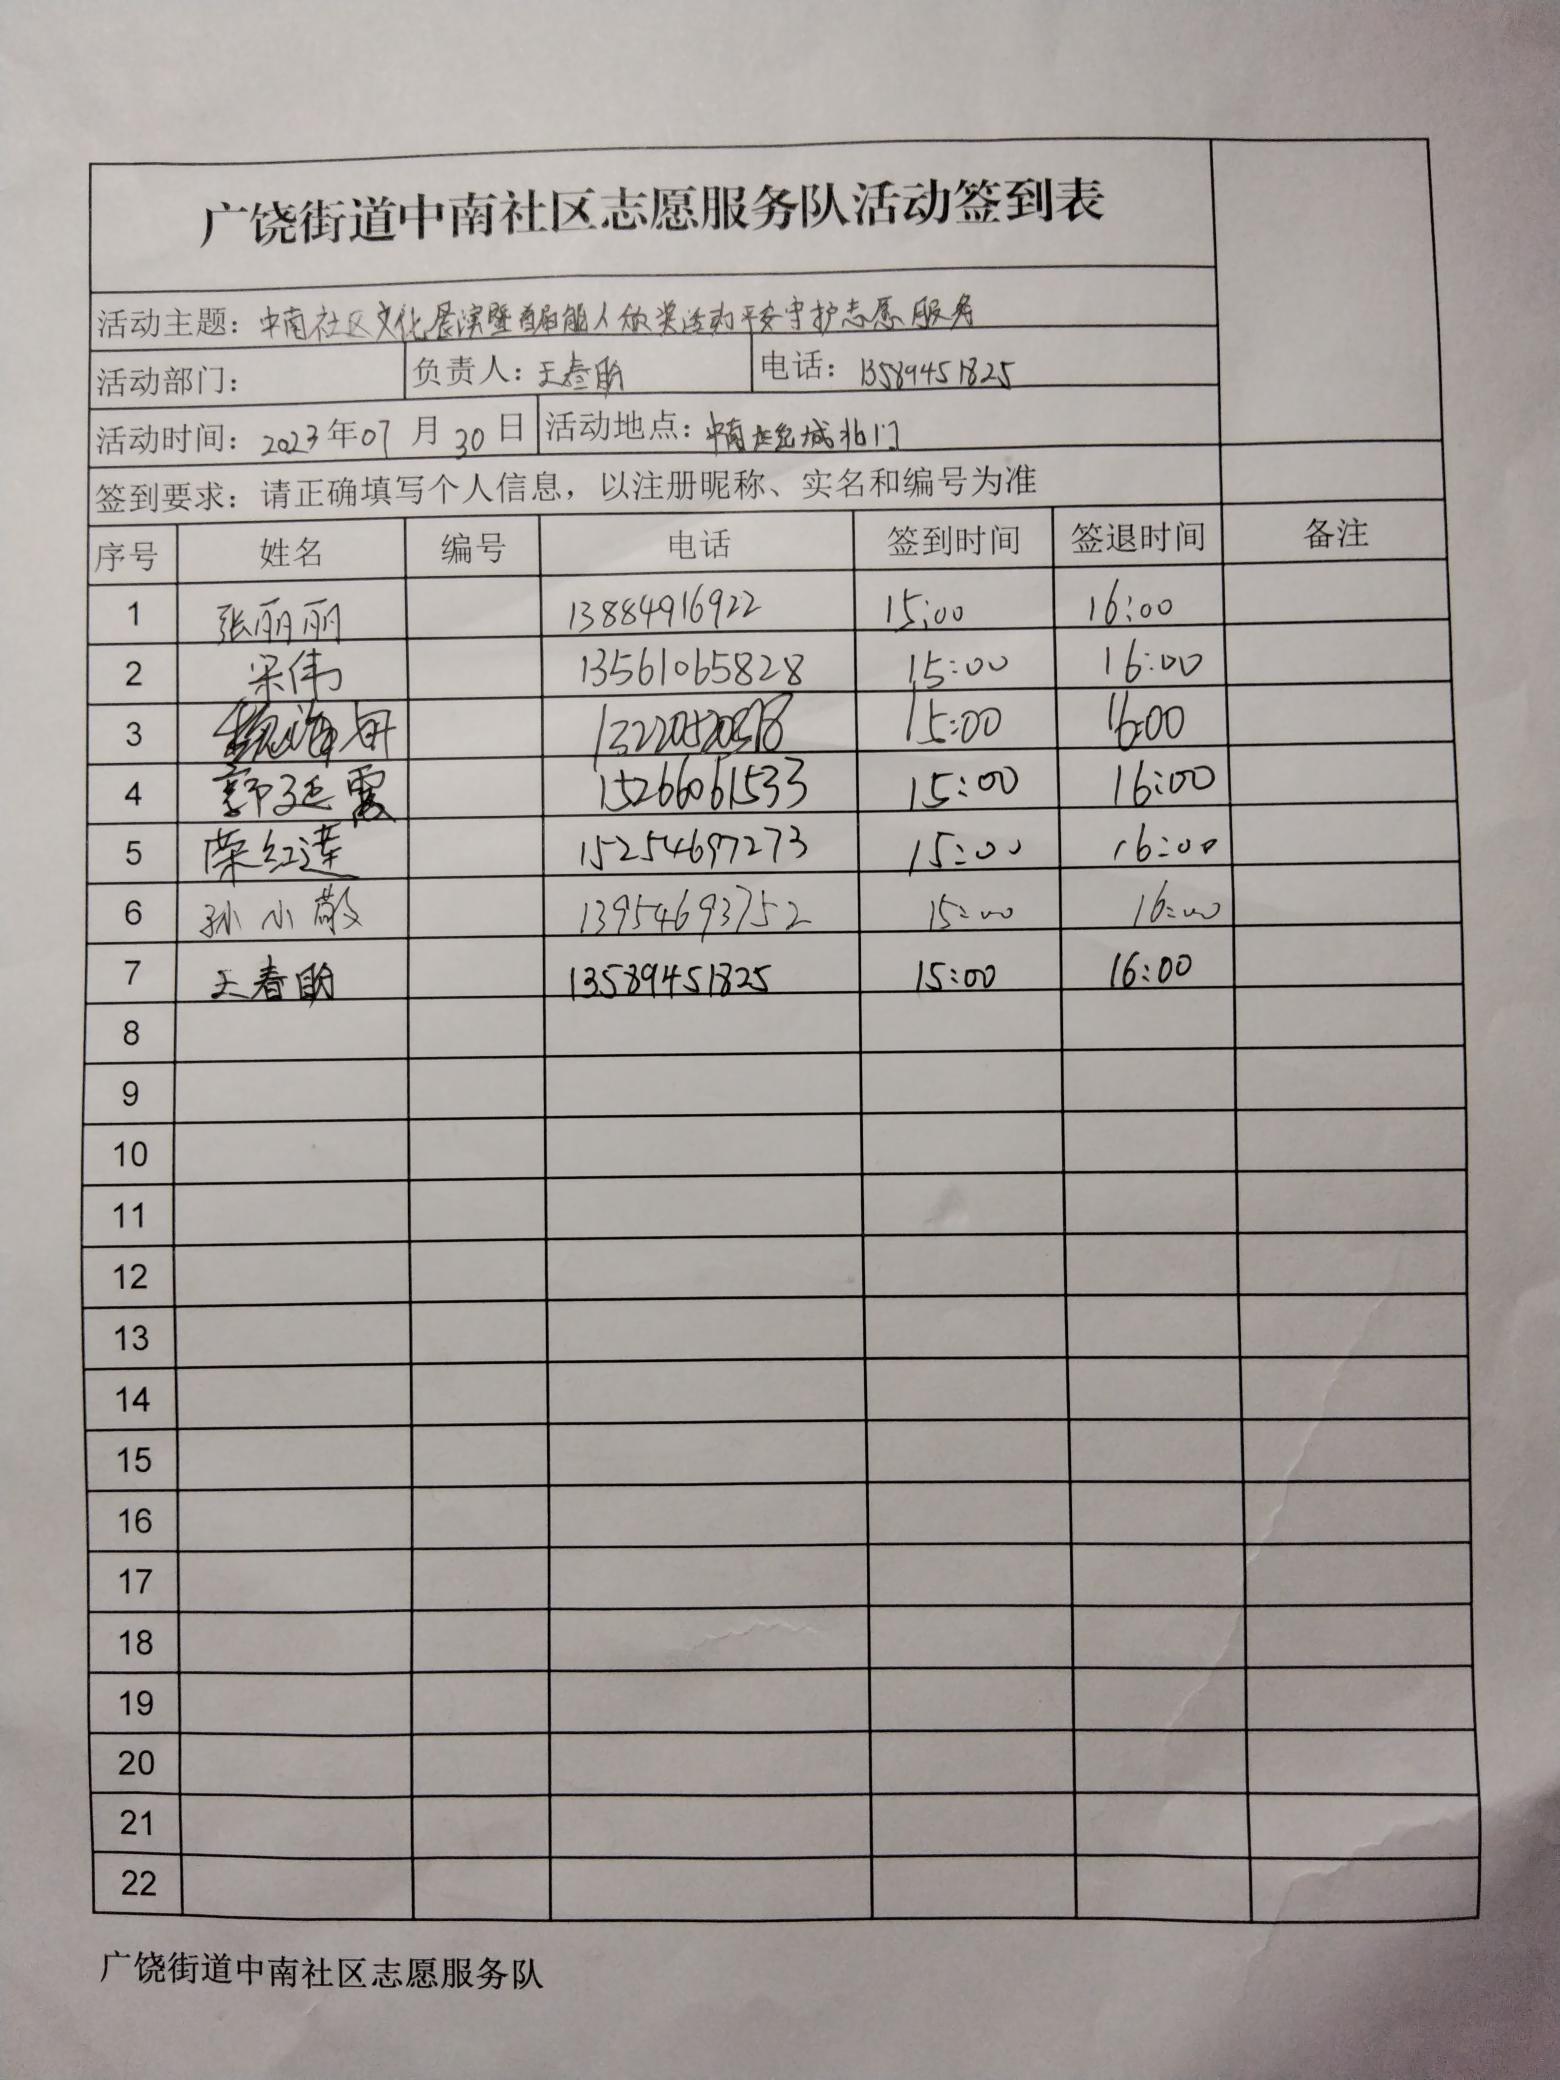 广饶街道中南社区志愿服务队活动签到表
活动主题：中南社区文化展演暨首届能人颁奖活动平安守护志愿服务
活动部门： 负责人：王春盼 电话：13589451825
活动时间：2023年07月30日 活动地点：中南世纪城北门
签到要求：请正确填写个人信息，以注册昵称、实名和编号为准
序号 姓名 编号 电话 签到时间 签退时间 备注
1 张丽丽 13884916922 15:00 16:00
2 宋伟 13561065828 15:00 16:00
3 15:00 16:00
4 郭廷霞 15266061533 15:00 16:00
5 荣红莲 15254697273 15:00 16:00
6 孙小敬 13954693752 15:00 16:00
7 王春盼 13589451825 15:00 16:00
8
9
10
11
12
13
14
15
16
17
18
19
20
21
22
广饶街道中南社区志愿服务队